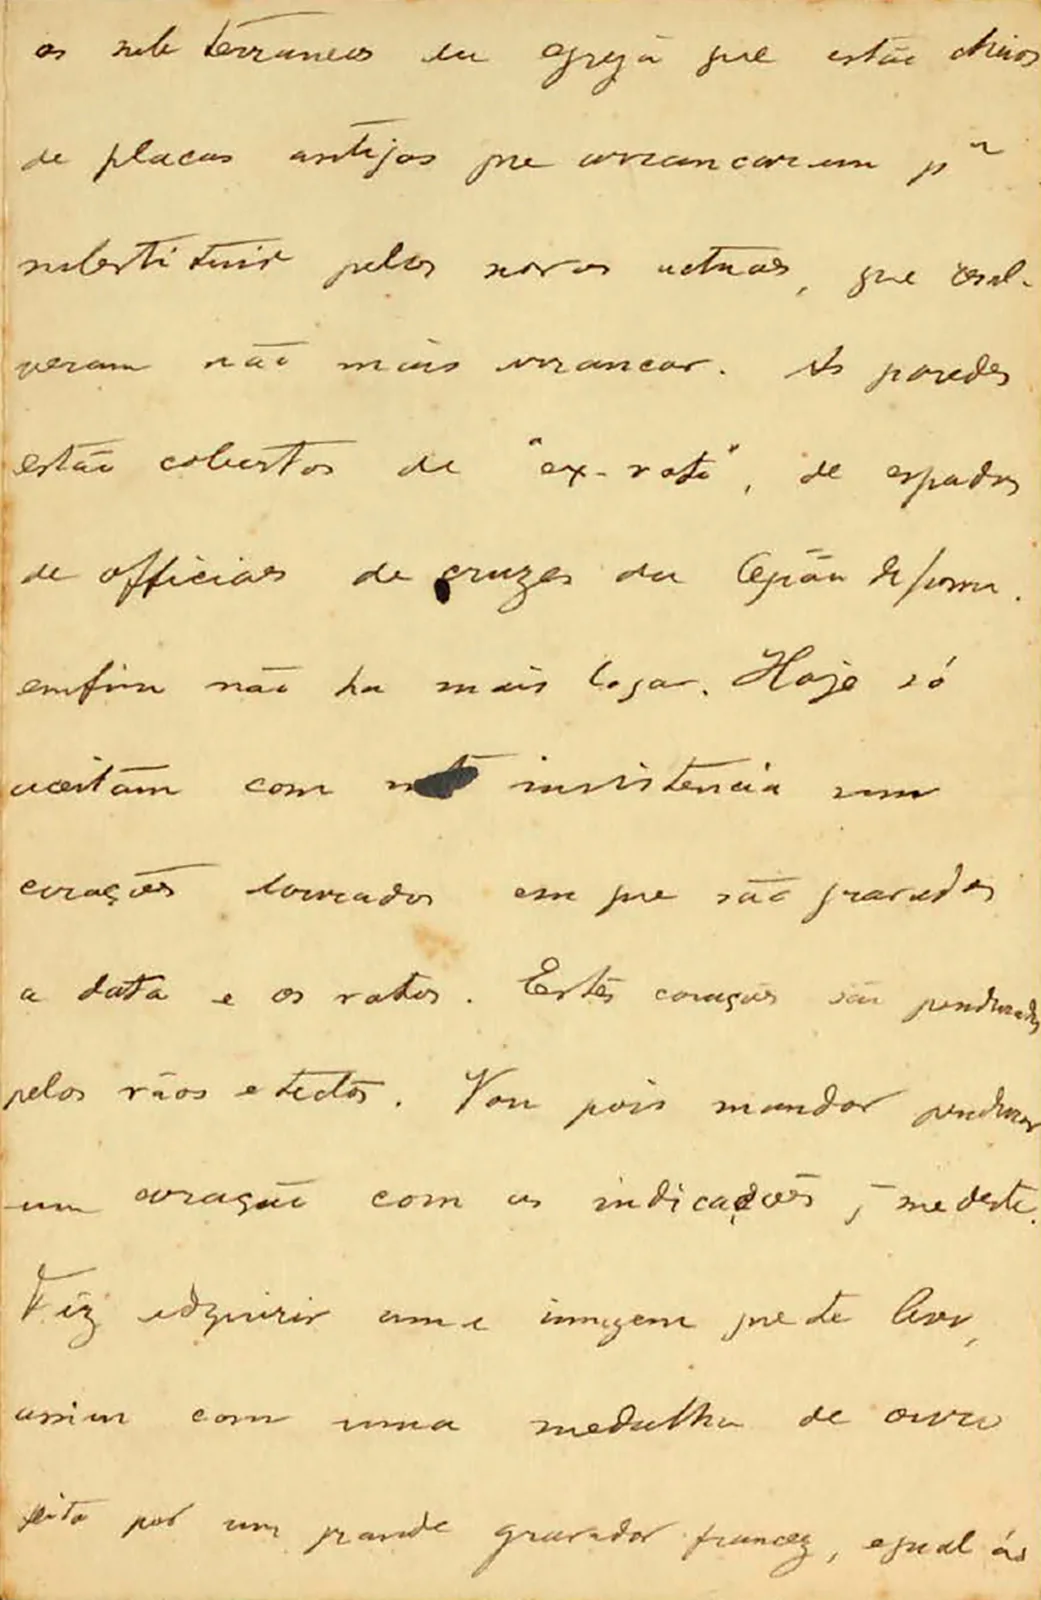 os subterraneos da egreja que estão cheios
de placas antigas que arrancaram pª
substituir pelas novas actuaes, que resol-
veram não mais arrancar. As paredes
estão cobertas de "ex-voto", de espadas
de officiaes de cruzes da Legião de honra.
emfim não ha mais logar. Hoje só
aceitam com insistencia uns
corações dourados em que são gravados
a data e os votos. Estes corações são pendurados
pelos vãos e tectos. Vou pois mandar pendurar
um coração com as indicações, q̃ me déste.
Fiz adquirir uma imagem que te levo,
assim com uma medalha de ouro
feita por um grande gravador francez, egual ás